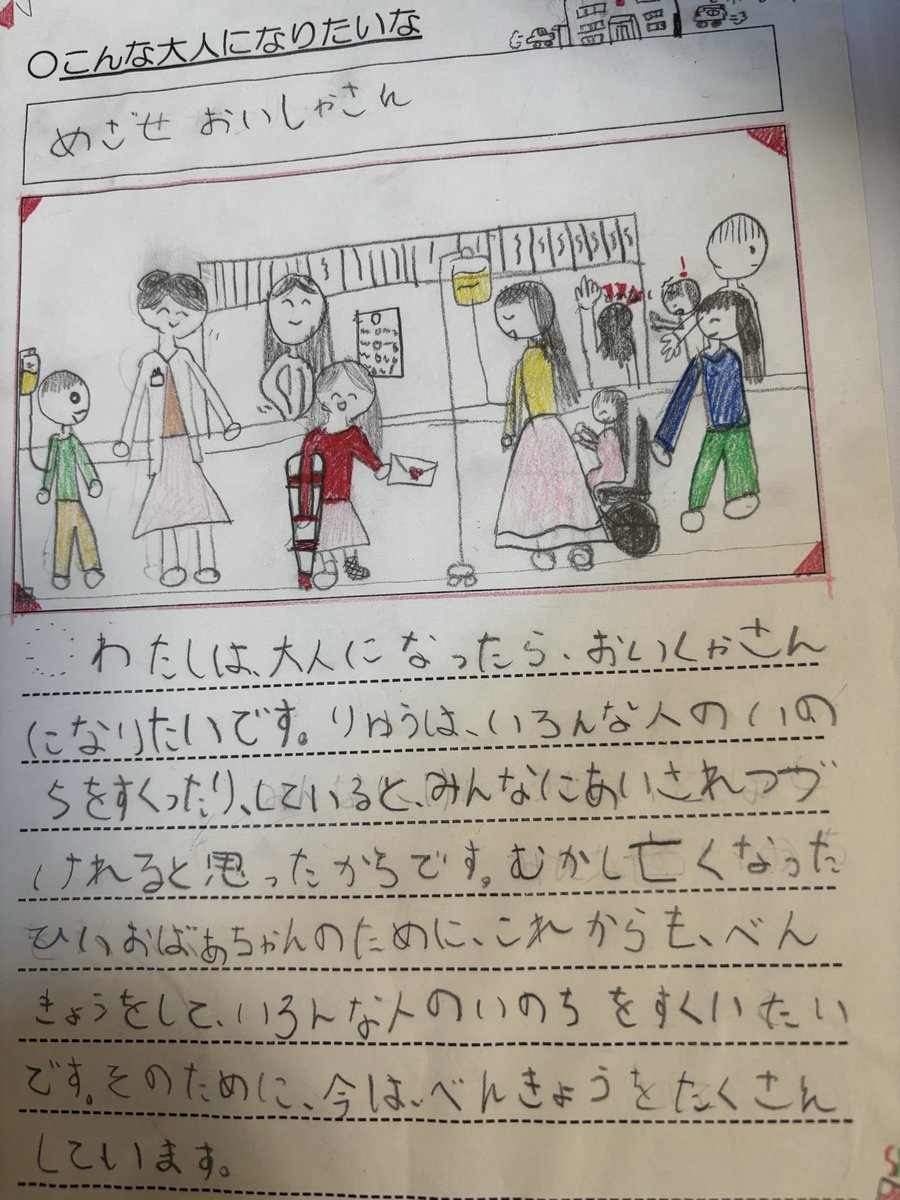 ○こんな大人になりたいな
めざせ おいしゃさん
わたしは、大人になったら、おいしゃさん
になりたいです。りゆうは、いろんな人のいの
ちをすくったり、していると、みんなにあいされつづ
けれると思ったからです。むかし亡くなった
ひいおばあちゃんのために、これからも、べん
きょうをして、いろんな人のいのちをすくいたい
です。そのために、今は、べんきょうをたくさん
しています。